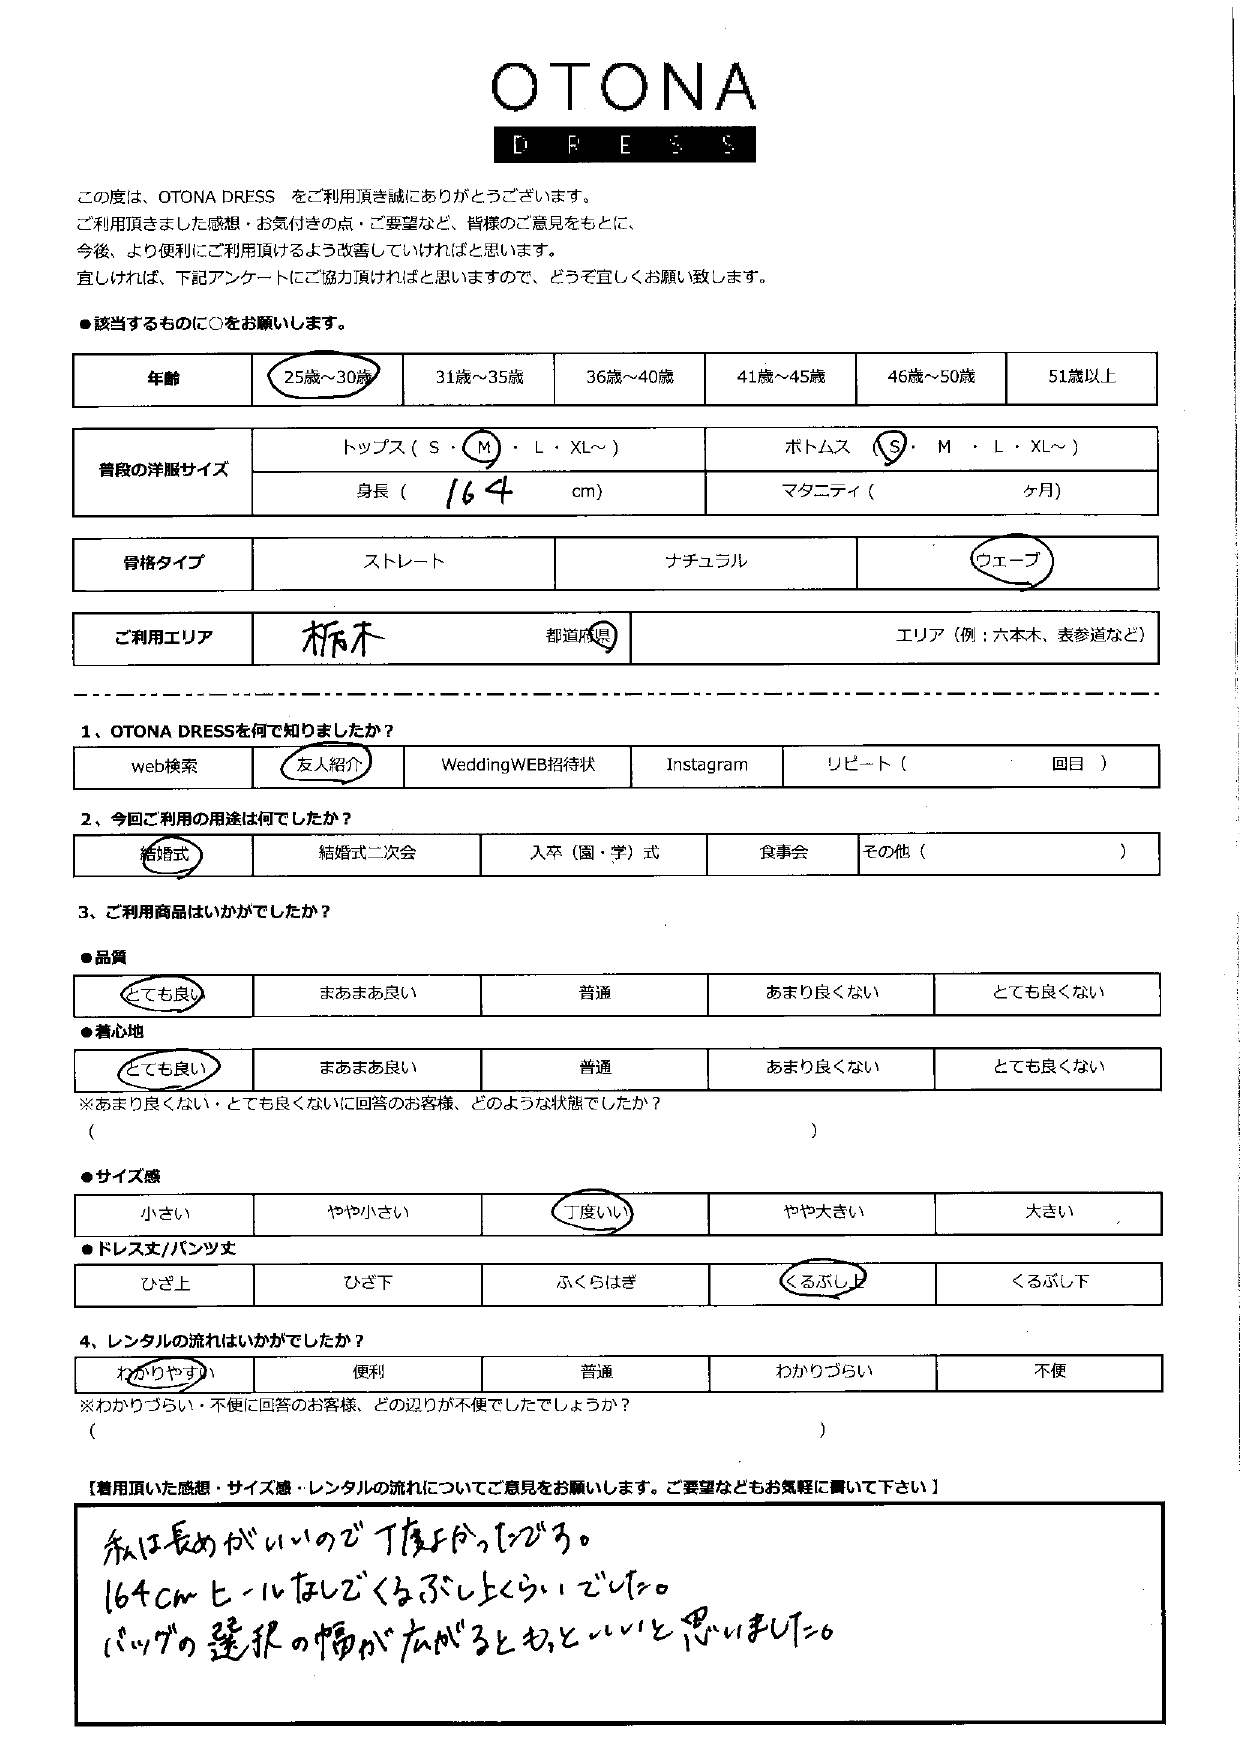 OTONA
DRESS
この度は、OTONA DRESS をご利用頂き誠にありがとうございます。
ご利用頂きました感想・お気付きの点・ご要望など、皆様のご意見をもとに、
今後、より便利にご利用頂けるよう改善していければと思います。
宜しければ、下記アンケートにご協力頂ければと思いますので、どうぞ宜しくお願い致します。
●該当するものに○をお願いします。
年齢 25歳～30歳 31歳～35歳 36歳～40歳 41歳～45歳 46歳～50歳 51歳以上
普段の洋服サイズ トップス ( S ・ M ・ L ・ XL～ ) ボトムス ( S ・ M ・ L ・ XL～ )
身長 ( 164 cm) マタニティ ( ヶ月)
骨格タイプ ストレート ナチュラル ウェーブ
ご利用エリア 栃木 都道府県 エリア（例：六本木、表参道など）
1、OTONA DRESSを何で知りましたか？
web検索 友人紹介 WeddingWEB招待状 Instagram リピート ( 回目 )
2、今回ご利用の用途は何でしたか？
結婚式 結婚式二次会 入卒（園・学）式 食事会 その他 ( )
3、ご利用商品はいかがでしたか？
●品質
とても良い まあまあ良い 普通 あまり良くない とても良くない
●着心地
とても良い まあまあ良い 普通 あまり良くない とても良くない
※あまり良くない・とても良くないに回答のお客様、どのような状態でしたか？
( )
●サイズ感
小さい やや小さい 丁度いい やや大きい 大きい
●ドレス丈/パンツ丈
ひざ上 ひざ下 ふくらはぎ くるぶし上 くるぶし下
4、レンタルの流れはいかがでしたか？
わかりやすい 便利 普通 わかりづらい 不便
※わかりづらい・不便に回答のお客様、どの辺りが不便でしたでしょうか？
( )
【着用頂いた感想・サイズ感・レンタルの流れについてご意見をお願いします。ご要望などもお気軽に書いて下さい】
私は長めがいいので丁度よかったです。
164cmヒールなしでくるぶし上くらいでした。
バッグの選択の幅が広がるともっといいと思いました。